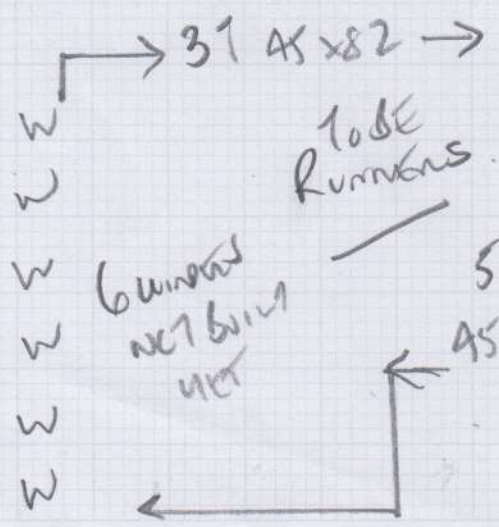 31 45x82
W
W
W
W
W
W
TO BE
RUNNERS
6 WINDERS
NOT BUILT
YET
5
45